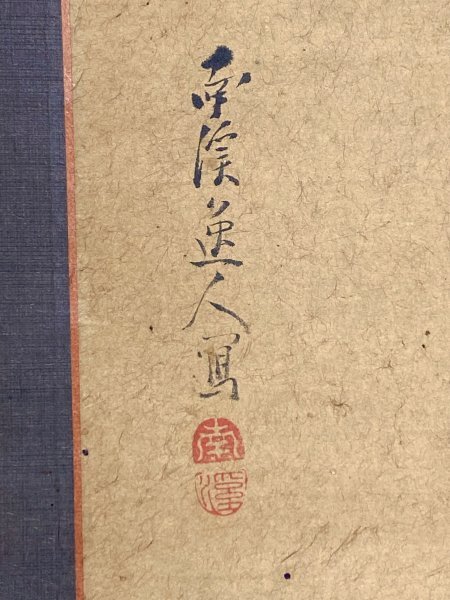 南溟逸人寫
南
溟